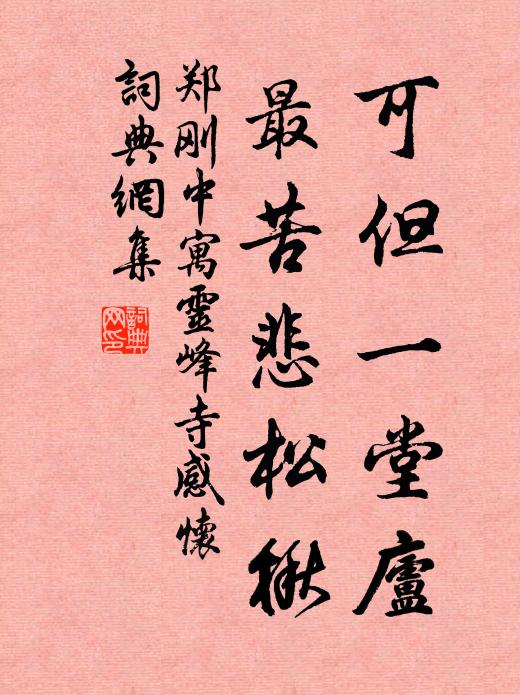 可但一堂廬
最苦悲松楸
郑刚中寓靈峰寺感懷
詞典網集
詞典网印